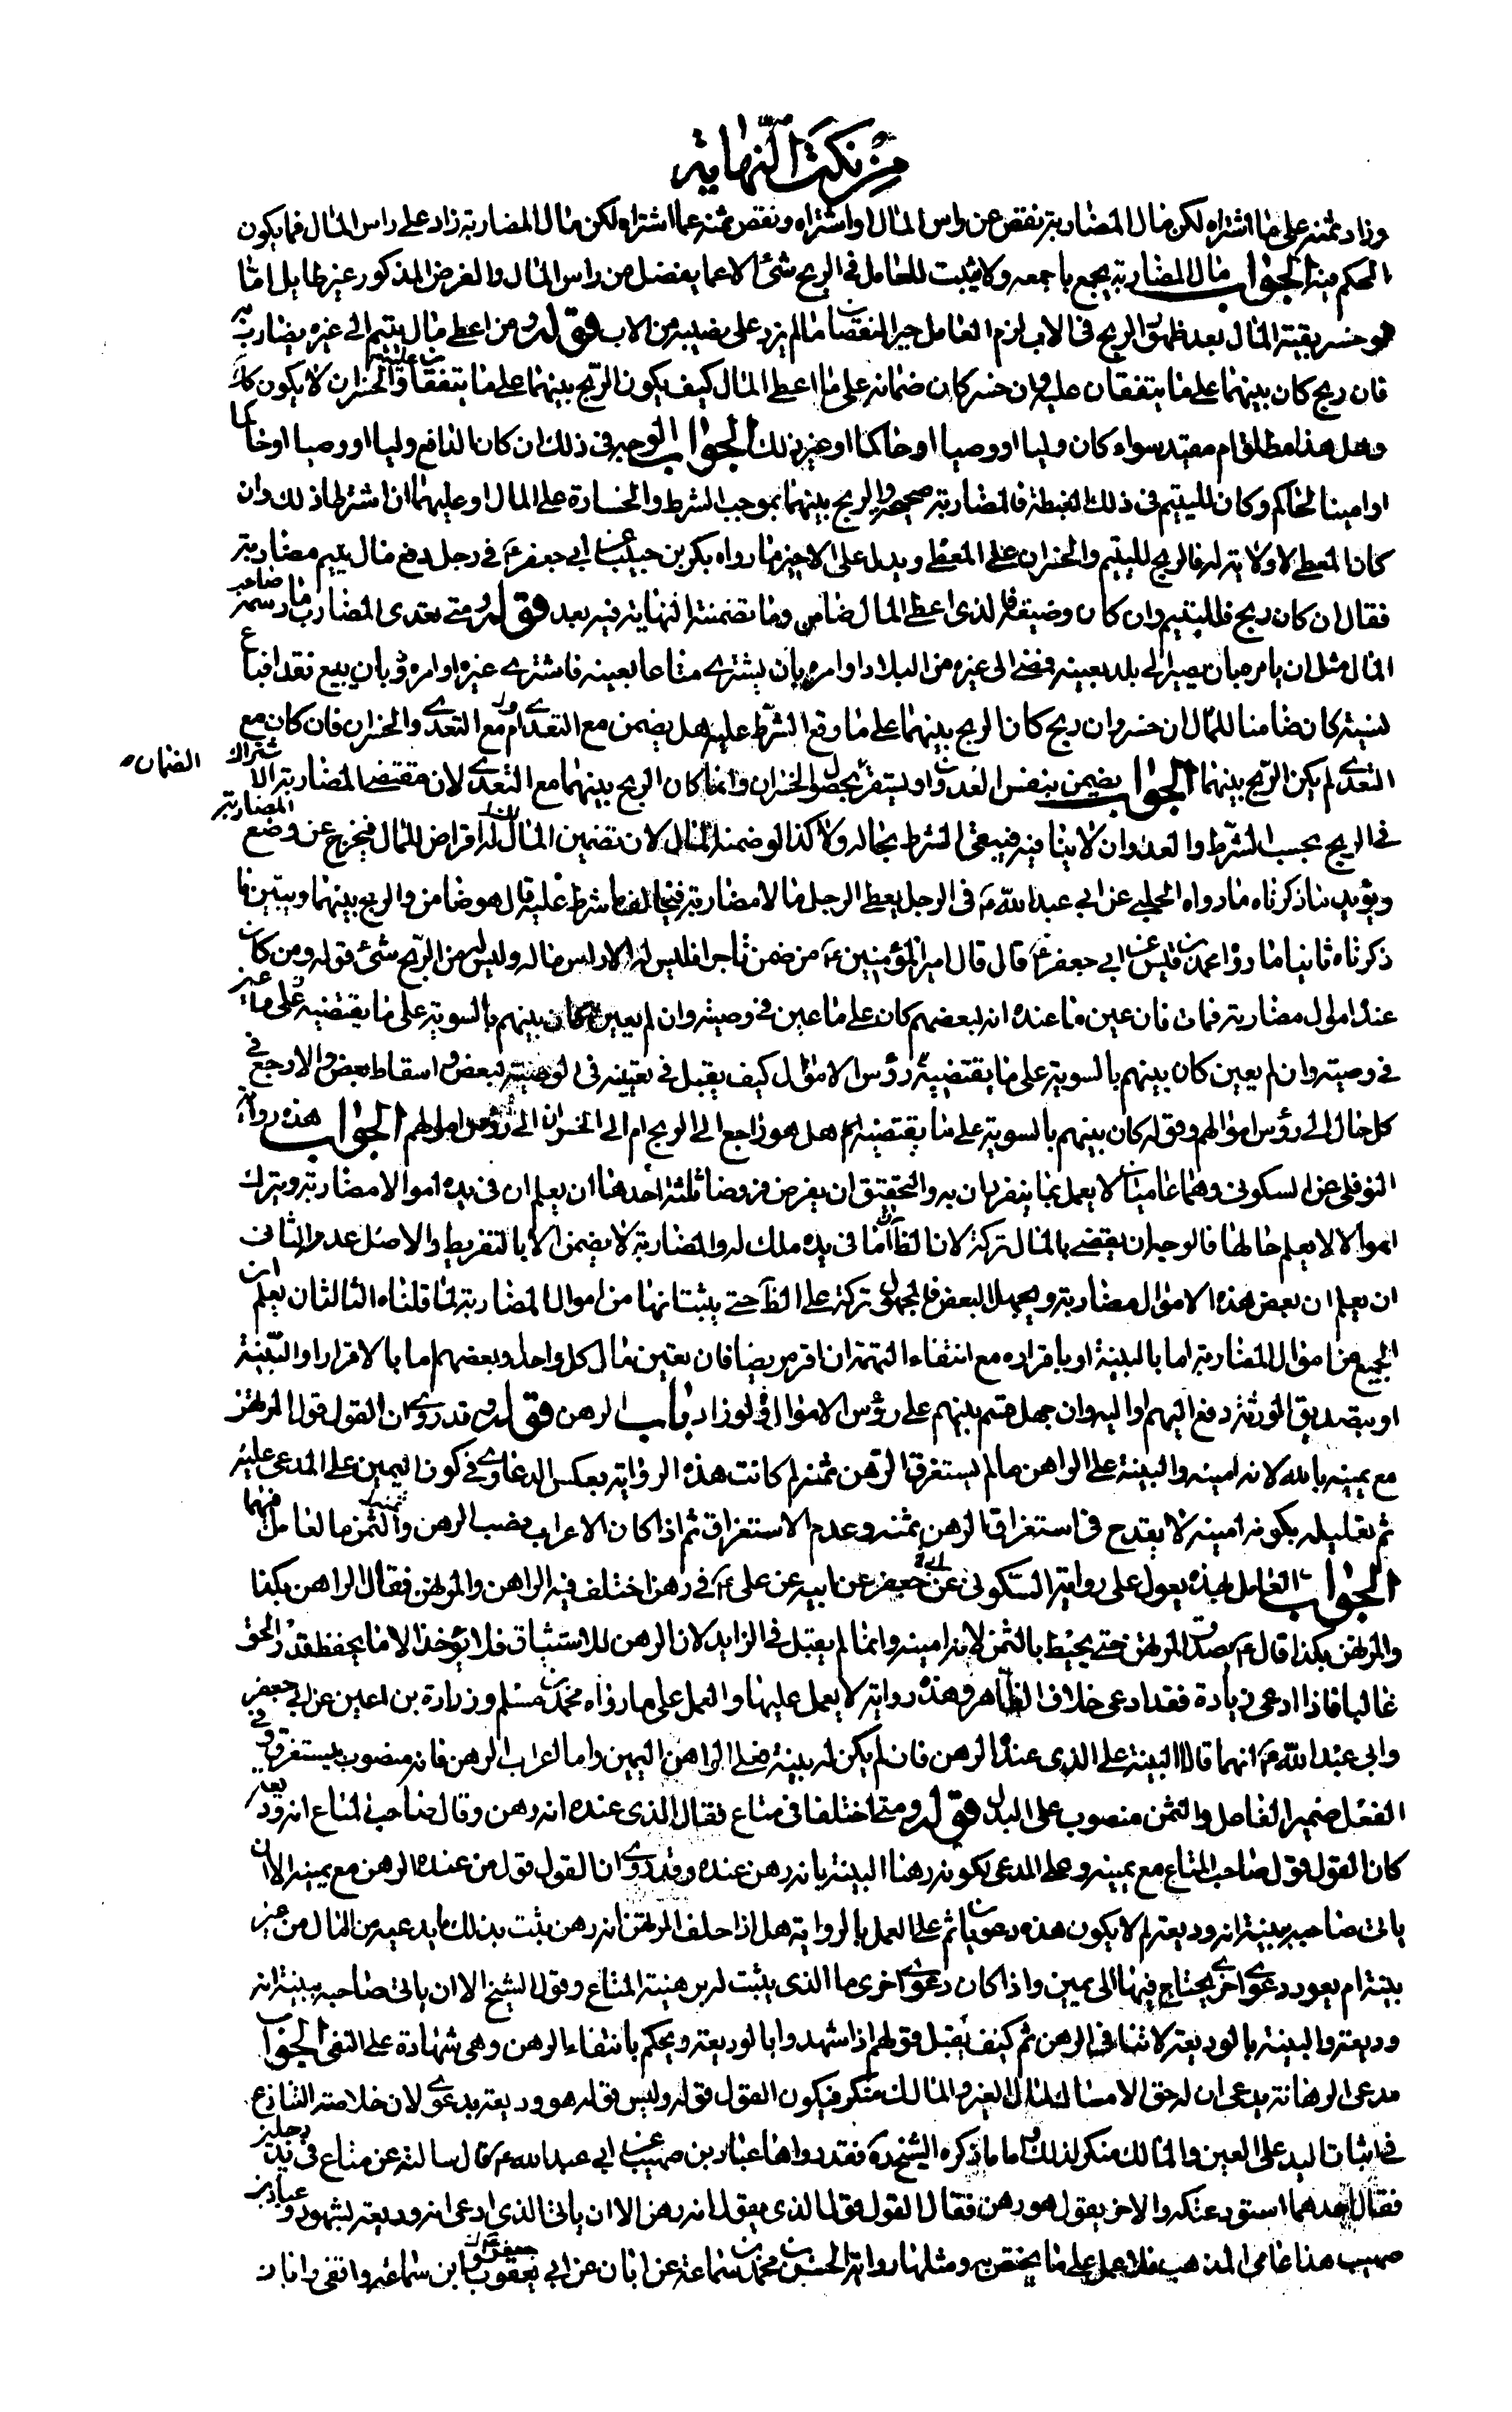 من نكت النهاية
وزاد ثمنه على ما اشتراه لكن مال المضاربة نقص عن راس المال او اشتراه ونقص ثمنه عما اشتراه لكن مال المضاربة زاد على راس المال فما يكون
الحكم فيه الجواب مال المضاربة يجمع باجمعه ولا يثبت للعامل في الربح شئ الا عما يفضل من راس المال والفرض المذكور غير طايل اما
لو خسر بقية المال بعد ظهور الربح في الاب لزم العامل جبر النقصان ما لم يزد على نصيبه من الاب قوله ومن اعطى مال يتيم الى غيره يضارب به
فان ربح كان بينهما على ما يتفقان عليه وان خسر كان ضمانه على ما اعطى المال كيف يكون الربح بينهما على ما يتفقان عليه والخسران لا يكون كك
وهل هذا مطلق ام مقيد سواء كان وليا او وصيا او حاكما او غير ذلك الجواب الوجه في ذلك ان كان الدافع وليا او وصيا او حاكما
او امينا لحاكم وكان لليتيم في ذلك الغبطة فالمضاربة صحيحة والربح بينهما بموجب الشرط والخسارة على المال او عليهما ان اشترطا ذلك وان
كان المعطى لا ولاية له فالربح لليتيم والخسران على المعطى ويدل على الاخير ما رواه بكر بن حبيب عن ابي جعفر ع في رجل دفع مال يتيم مضاربة
فقال ان كان ربح فلليتيم وان كان وضيعة فالذي اعطى المال ضامن وما تضمنته النهاية فيه بعد قوله ومتى تعدى المضارب ما رسمه صاحب
المال مثل ان يامره بان يصير الى بلد بعينه فمضى الى غيره من البلاد او امره بان يشترى متاعا بعينه فاشترى غيره او امره بان يبيع نقدا فباع
نسيئة كان ضامنا للمال ان خسر وان ربح كان الربح بينهما على ما وقع الشرط عليه هل يضمن مع التعدى ام مع التعدى والخسران فان كان مع
التعدى لم يكن الربح بينهما الجواب يضمن بنفس العدوان ويستقر بحصول الخسران وانما كان الربح بينهما مع التعدى لان مقتضى المضاربة الاشتراك
الضمان
في الربح بحسب الشرط والعدوان لا ينافيه فيبقى الشرط بحاله ولا كذا لو ضمنه المال لان تضمين المال له اقراض للمال فيخرج عن وضع المضاربة
ويؤيد ما ذكرناه ما رواه الحلبى عن ابي عبد الله ع في الرجل يعطى الرجل مالا مضاربة فيخالف ما شرط عليه قال هو ضامن والربح بينهما ويبين ما
ذكرناه ثانيا ما رواه محمد بن قيس عن ابي جعفر ع قال قال امير المؤمنين ع من ضمن تاجرا فليس له الا راس ماله وليس له من الربح شئ قوله ومن كان
عنده اموال مضاربة فمات فان عين ما عنده انه لبعضهم كان على ما عين في وصيته وان لم يعين كان بينهم بالسوية على ما يقتضيه على ما عين
في وصيته وان لم يعين كان بينهم بالسوية على ما يقتضيه رؤس الاموال كيف يقبل في تعيينه في الوصية لبعض واسقاط بعض والا رجع في
كل حال الى رؤس اموالهم وقوله كان بينهم بالسوية على ما يقتضيه هل هو راجع الى الربح ام الى الخسران الى رؤس اموالهم الجواب هذه رواية
النوفلى عن السكونى وهما عاميان لا يعمل بما ينفردان به والتحقيق ان يفرض فروضا ثلثة احدها ان يعلم ان في يده اموالا مضاربة ويترك
اموالا لا يعلم حالها فالوجه ان يقضى بالمال تركة لان الظاهر ان ما في يده ملك له والمضاربة لا يضمن الا بالتفريط والاصل عدمه الثانى
ان يعلم ان بعض هذه الاموال مضاربة ويجهل البعض فالمجهول تركة على الظاهر حتى يثبت انها من اموال المضاربة لما قلناه الثالث ان يعلم ان
الجميع من اموال المضاربة اما بالبينة او باقراره مع انتفاء التهمة ان اقر مريضا فان تعين مال كل واحد وبعضهم اما بالاقرار او البينة
او بتصديق الورثة دفع اليهم او اليه وان جهل قسم بينهم على رؤس الاموال لو زاد باب الرهن قوله وقد روى ان القول قول المرتهن
مع يمينه بالله لانه امينه والبينة على الراهن ما لم يستغرق الرهن ثمنه لم كانت هذه الرواية بعكس الدعاوى في كون اليمين على المدعى عليه
ثم تعليله بكونه امينه لا يقدح في استغراق الرهن ثمنه وعدم الاستغراق ثم اذا كان الاعراب بنصب الرهن والثمن ما العامل فيهما
الجواب العامل بهذه يعول على رواية السكونى عن جعفر عن ابيه عن على ع في رهن اختلف فيه الراهن والمرتهن فقال الراهن بكذا
والمرتهن بكذا قال ع يصدق المرتهن حتى يحيط بالثمن لانه امينه وانما لم يقبل في الزايد لان الرهن للاستيثاق فلا يؤخذ الا ما يحفظ قدر الحق
غالبا فاذا ادعى زيادة فقد ادعى خلاف الظاهر وهذه رواية لا يعمل عليها والعمل على ما رواه محمد بن مسلم وزرارة بن اعين عن ابي جعفر
وابى عبد الله ع انهما قالا البينة على الذى عنده الرهن فان لم يكن له بينة فعلى الراهن اليمين واما اعراب الرهن فانه منصوب بيستغرق وفى
الفعل ضمير الفاعل والثمن منصوب على البدل قوله ومتى اختلفا في متاع فقال الذى عنده انه رهن وقال صاحب المتاع انه وديعة
كان القول قول صاحب المتاع مع يمينه وعلى المدعى لكونه رهنا البينة بانه رهن عنده وقد روى ان القول قول من عنده الرهن مع يمينه الا ان
ياتى صاحبه ببينة انه وديعة لم لا يكون هذه دعويان ثم على العمل بالرواية هل اذا حلف المرتهن انه رهن يثبت بذلك ما يدعيه من المال من غير
بينة ام يعود دعوى اخرى يحتاج فيها الى يمين واذا كان دعوى اخرى ما الذى يثبت له برهنية المتاع وقول الشيخ الا ان ياتى صاحبه ببينة انه
وديعة والبينة بالوديعة لا تنافى الرهن ثم كيف يقبل قولهم اذا شهدوا بالوديعة ويحكم بانتفاء الرهن وهى شهادة على النفى الجواب
مدعى الرهانة يدعى ان له حق الامساك لمال الغير والمالك منكر فيكون القول قوله وليس قوله هو وديعة بدعوى لان خلاصة التنازع
في اثبات اليد على العين والمالك منكر لذلك واما ما ذكره الشيخ ره فقد رواها عباد بن صهيب عن ابي عبد الله ع قال سالته عن متاع في يد رجلين
فقال احدهما استودعتكه والاخر يقول هو رهن فقال القول قول الذى يقول انه رهن الا ان ياتى الذى ادعى انه وديعة بشهود وعباد بن
صهيب هذا عامى المذهب فلا عمل على ما يختص به ومثلها رواية الحسن بن محمد بن سماعة عن ابان عن ابن ابي يعفور وابن سماعة واقفى وابان